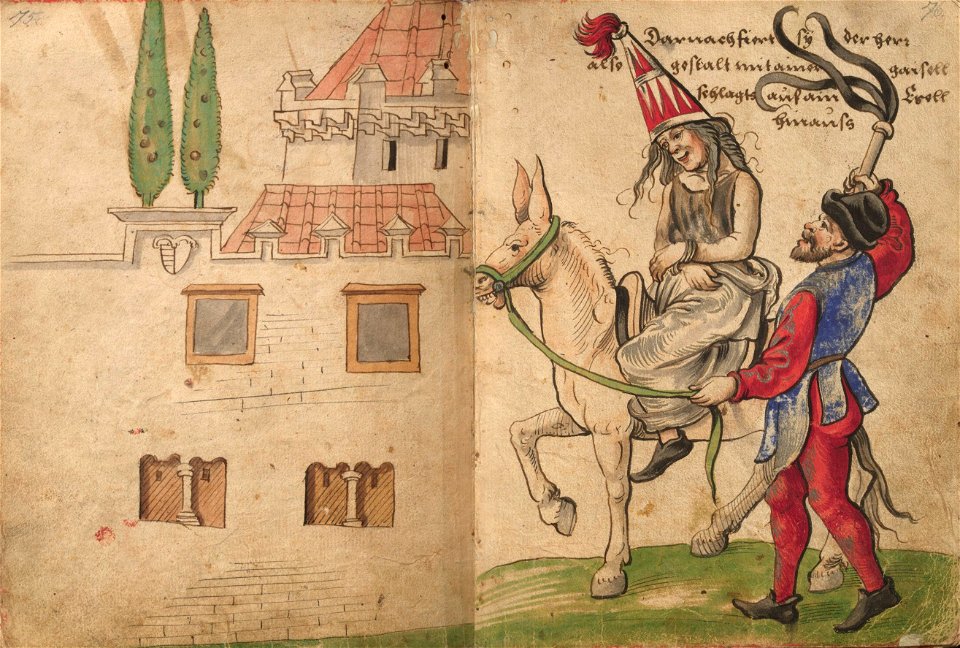 Darnach fiert sy der herr
also gestalt mit ainer gaisell
schlagts auf am Esell
hinauss